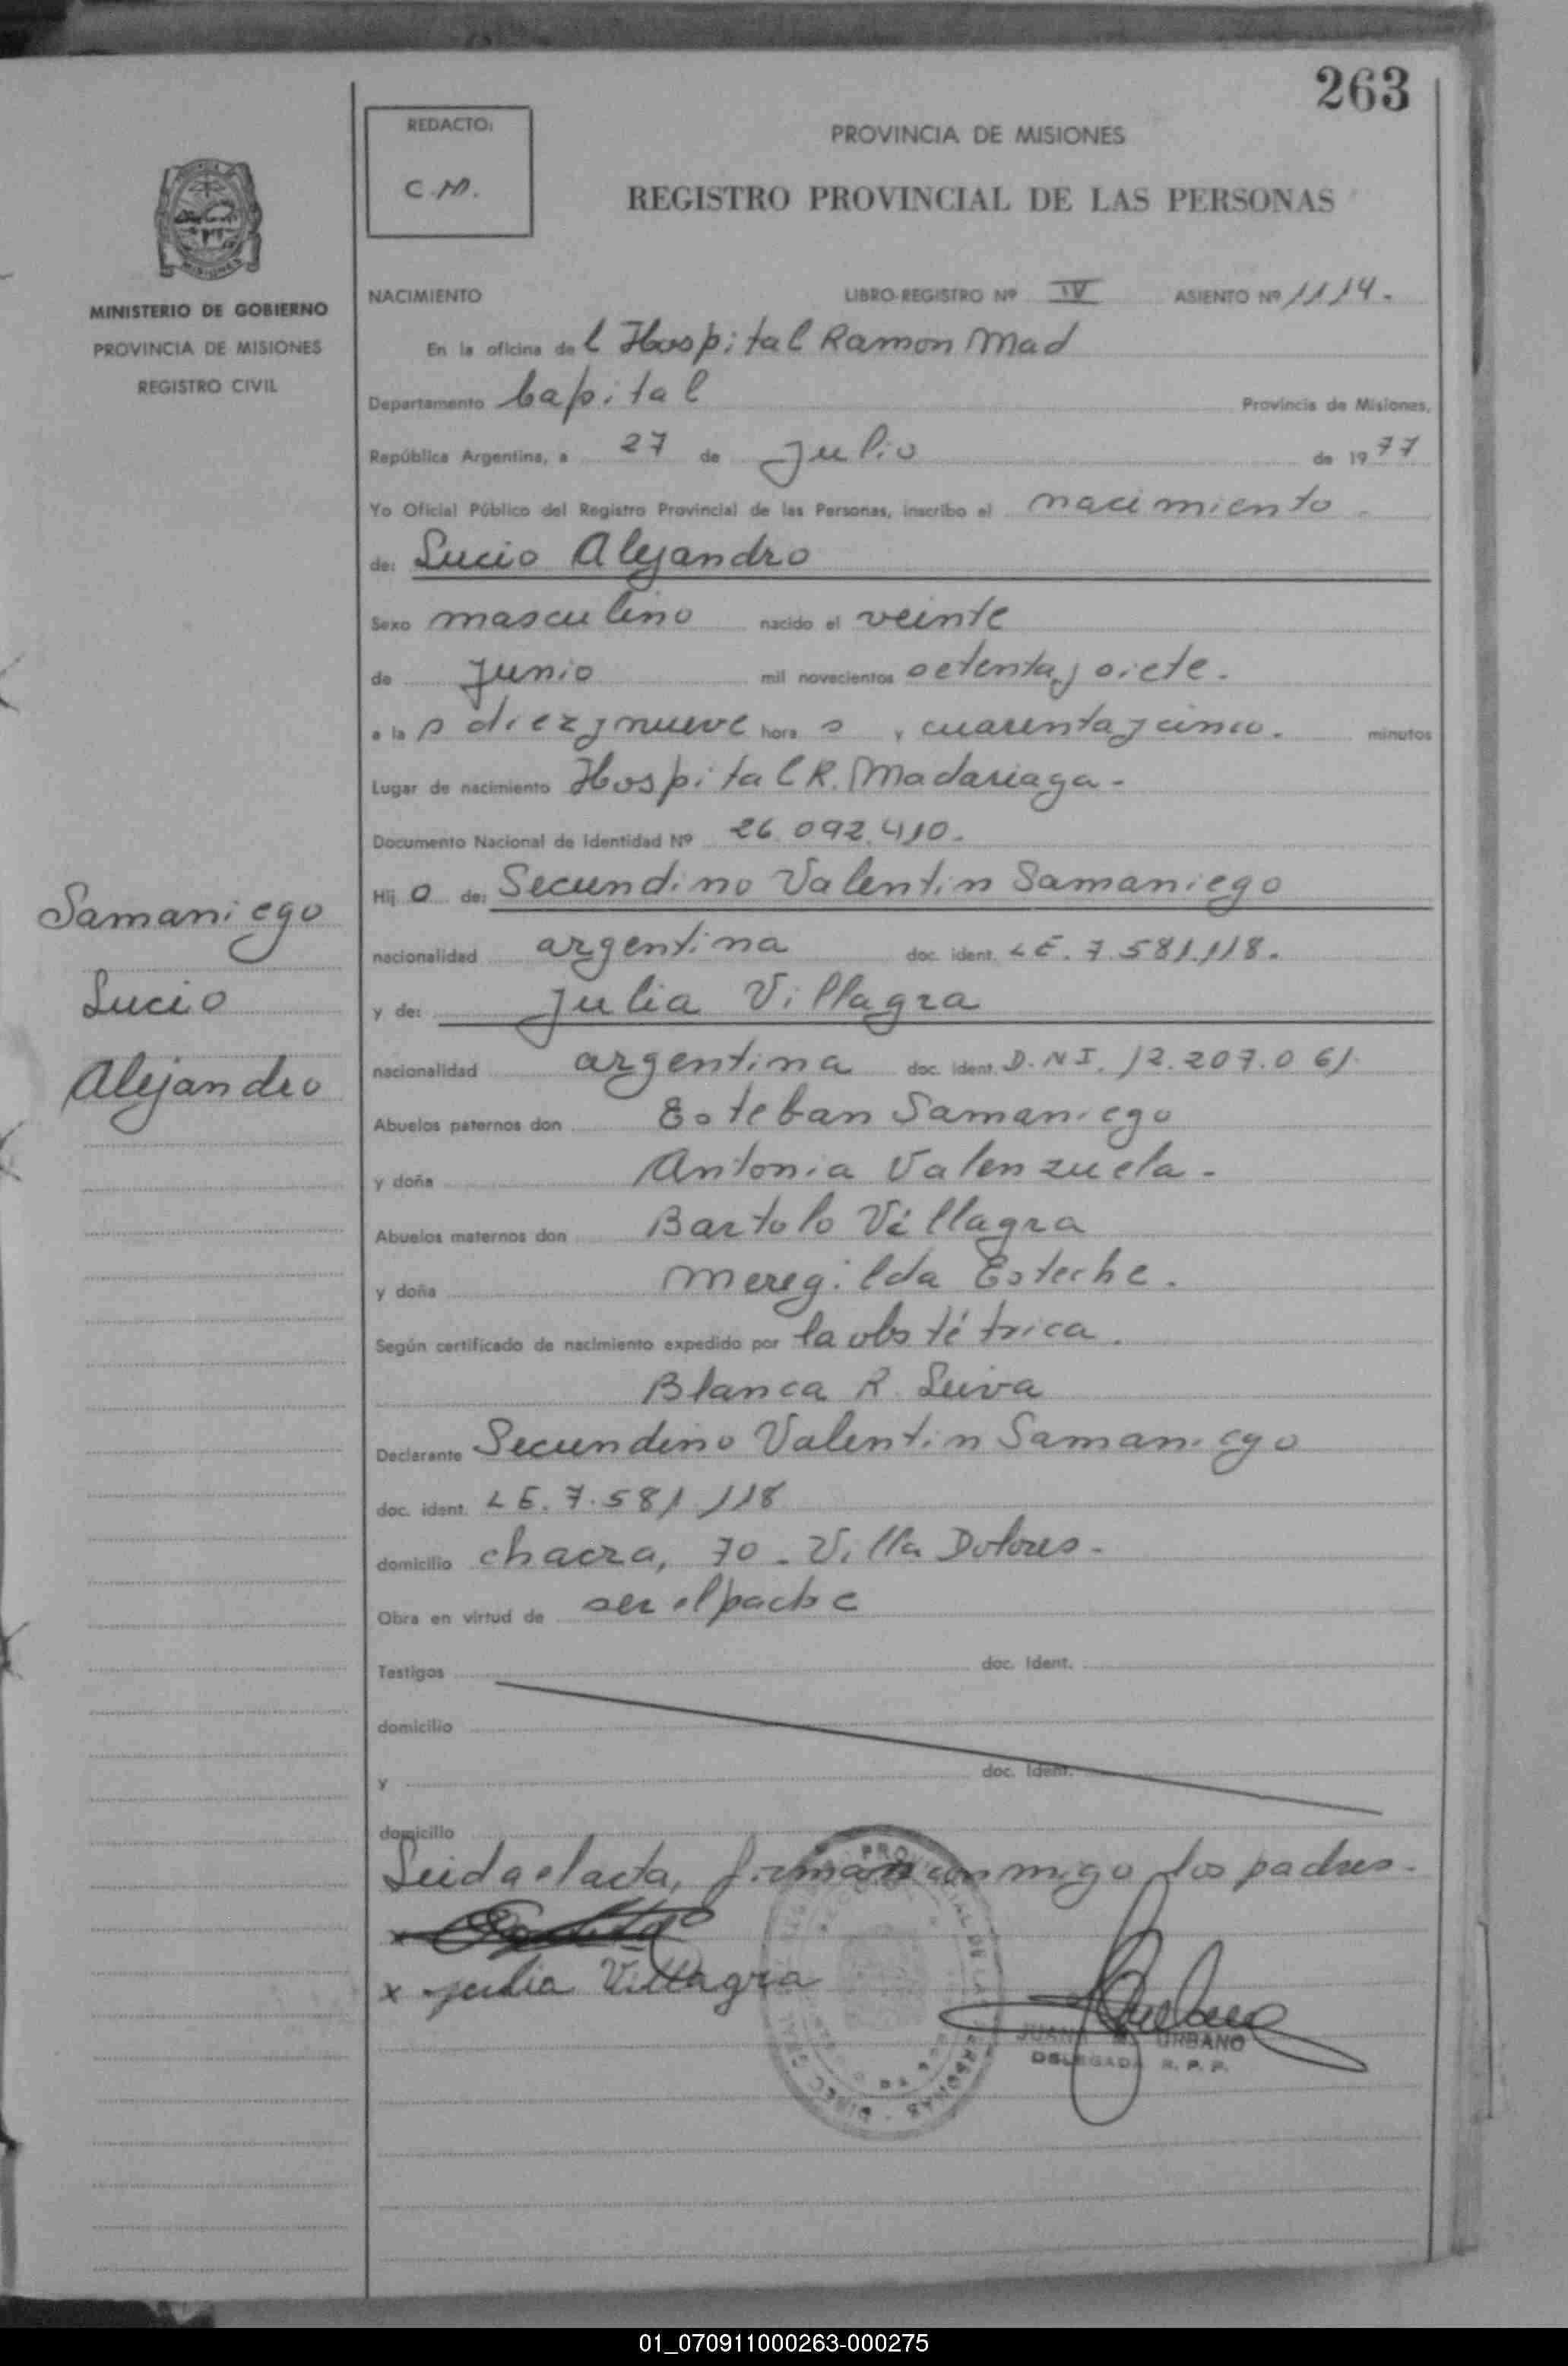 263
REDACTO:
C.M.
PROVINCIA DE MISIONES
REGISTRO PROVINCIAL DE LAS PERSONAS
MISIONES
MINISTERIO DE GOBIERNO
PROVINCIA DE MISIONES
REGISTRO CIVIL
NACIMIENTO LIBRO-REGISTRO Nº IV ASIENTO Nº 1114.
En la oficina del Hospital Ramon Mad
Departamento Capital Provincia de Misiones,
República Argentina, a 27 de Julio de 1977
Yo Oficial Público del Registro Provincial de las Personas, inscribo el nacimiento.
de: Lucio Alejandro
Sexo masculino nacido el veinte
de Junio mil novecientos setenta y siete.
a las diez y nueve horas y cuarenta y cinco. minutos
Lugar de nacimiento Hospital R. Madariaga-
Documento Nacional de Identidad Nº 26.092.410.
Hijo de: Secundino Valentin Samaniego
nacionalidad argentina doc. ident. LE. 7.581.118.
y de: Julia Villagra
nacionalidad argentina doc. ident. D.N.I. 12.207.061.
Abuelos paternos don Esteban Samaniego
y doña Antonia Valenzuela.
Abuelos maternos don Bartolo Villagra
y doña Meregilda Esteche.
Según certificado de nacimiento expedido por la obstétrica.
Blanca R. Leiva
Declarante Secundino Valentin Samaniego
doc. ident. LE. 7.581.118
domicilio chacra, 70 - Villa Dolores-
Obra en virtud de ser el padre
Testigos doc. Ident.
domicilio
y doc. Ident.
domicilio
Leida el acta, firman conmigo los padres.
x
x Julia Villagra
JUANA URBANO
DELEGADA R. P. P.
Samaniego
Lucio
Alejandro
01_070911000263-000275